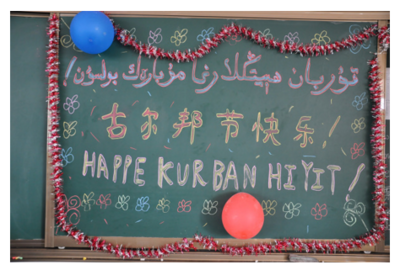 قۇربان ھېيتىڭلارغا مۇبارەك بولسۇن!
古尔邦节快乐!
HAPPE KURBAN HIYIT!